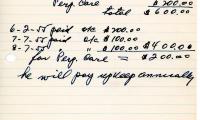 Perp. Care $200.00
total $600.00
6-2-55 paid o/c $200.00
7-7-55 paid o/c $100.00
8-7-55 " " $100.00 $400.00
for Perp. Care = $200.00
he will pay upkeep annually